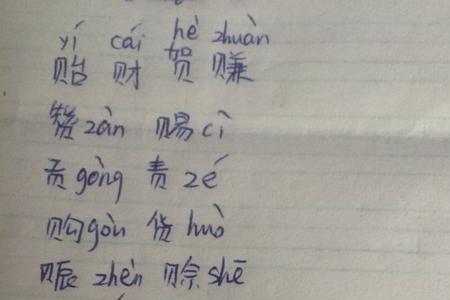 yí cái hè zhuàn
贻 财 贺 赚
赞 zàn 赐 cì
贡 gòng 责 zé
购 gòu 货 huò
赈 zhèn 赊 shē